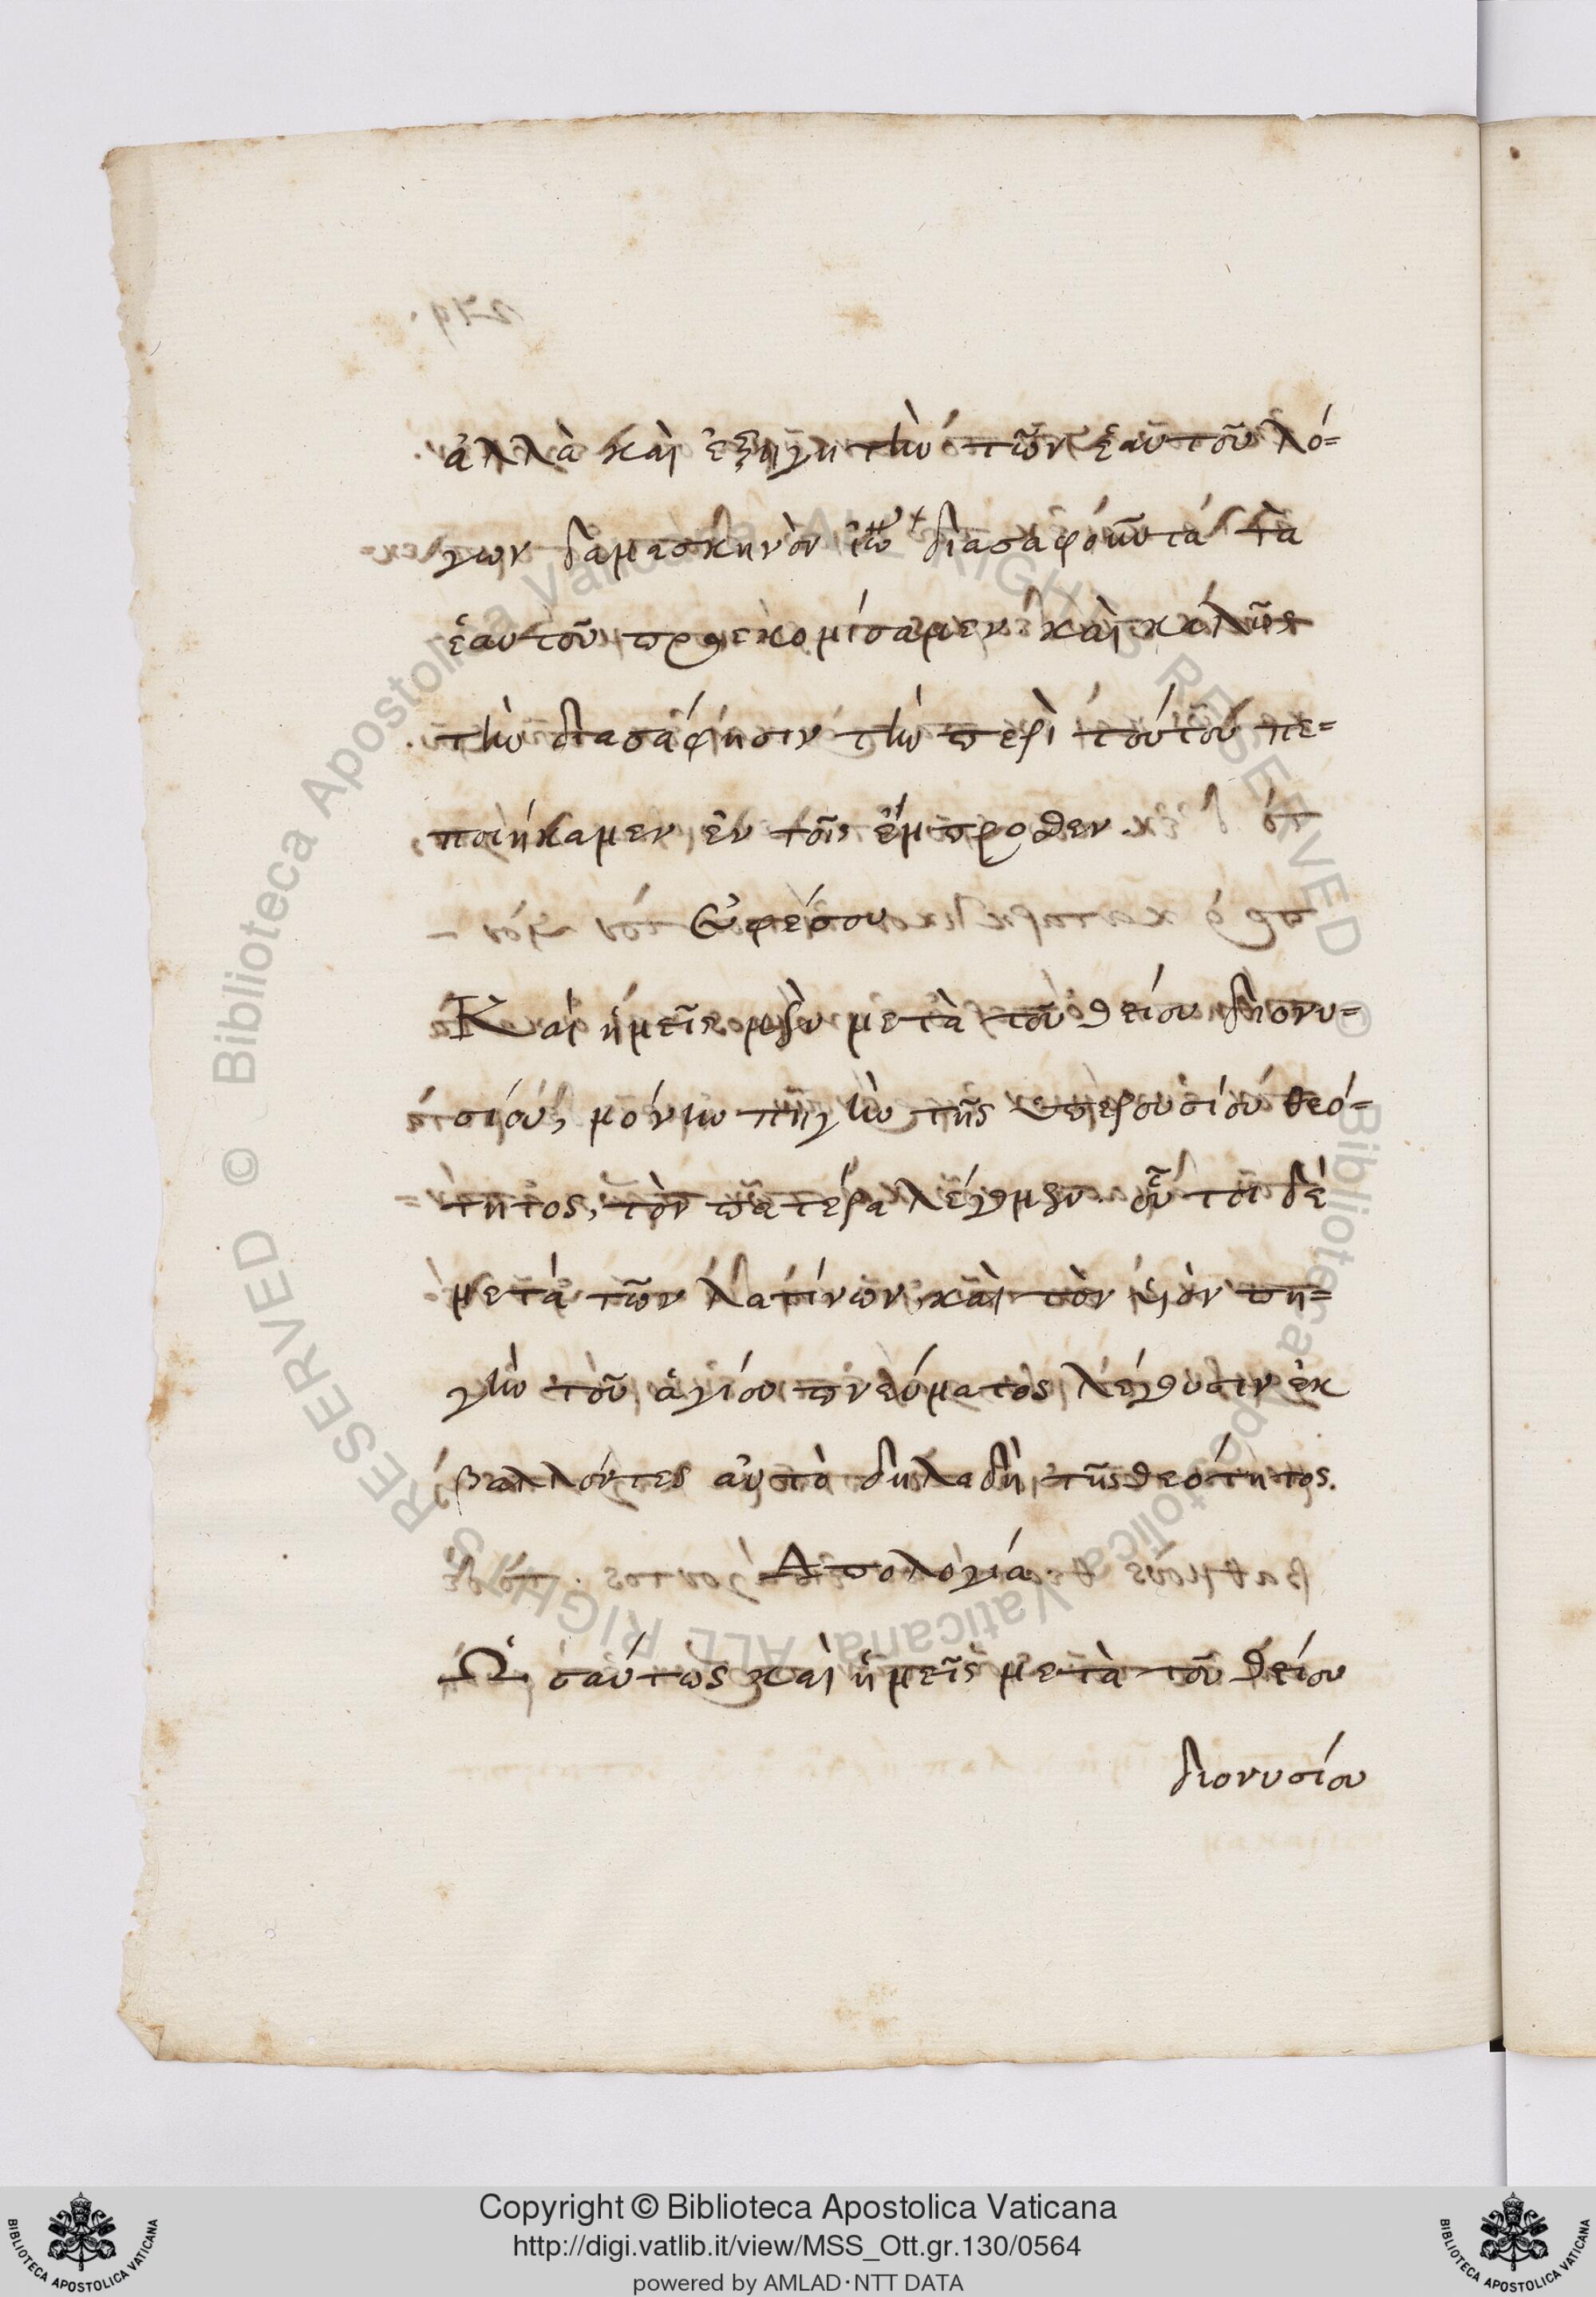 ἀλλὰ καὶ ἐξηγητὴν τῶν ἑαυτοῦ λό=
γων δαμασκηνὸν ἰω διασαφοῦντα τὰ
ἑαυτοῦ προεκομίσαμεν καὶ καλῶς
τὴν διασάφησιν τὴν περὶ τούτου πε=
ποιήκαμεν ἐν τοῖς ἔμπροθεν.
Ἐφέσου
Καὶ ἡμεῖς μὲν μετὰ τοῦ θείου διονυ=
σίου, μόνην πηγὴν τῆς ὑπερουσίου θεό=
τητος, τὸν πατέρα λέγομεν. οὗτοι δὲ
μετὰ τῶν λατίνων, καὶ τὸν υἱὸν πη=
γὴν τοῦ ἁγίου πνεύματος λέγουσιν ἐκ
βαλλόντες αὐτὸ δηλαδὴ τῆς θεότητος.
Απολογία
Ὡσαύτως καὶ ἡμεῖς μετὰ τοῦ θείου
διονυσίου
Copyright © Biblioteca Apostolica Vaticana
http://digi.vatlib.it/view/MSS_Ott.gr.130/0564
powered by AMLAD·NTT DATA
BIBLIOTECA APOSTOLICA VATICANA
BIBLIOTECA APOSTOLICA VATICANA
© Biblioteca Apostolica Vaticana ALL RIGHTS RESERVED
© Biblioteca Apostolica Vaticana ALL RIGHTS RESERVED